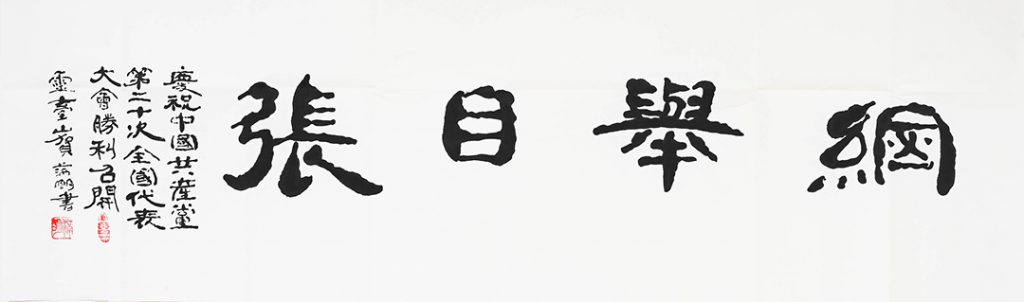 綱舉目張
慶祝中國共產黨
第二十次全國代表
大會勝利召開
靈臺山賀書